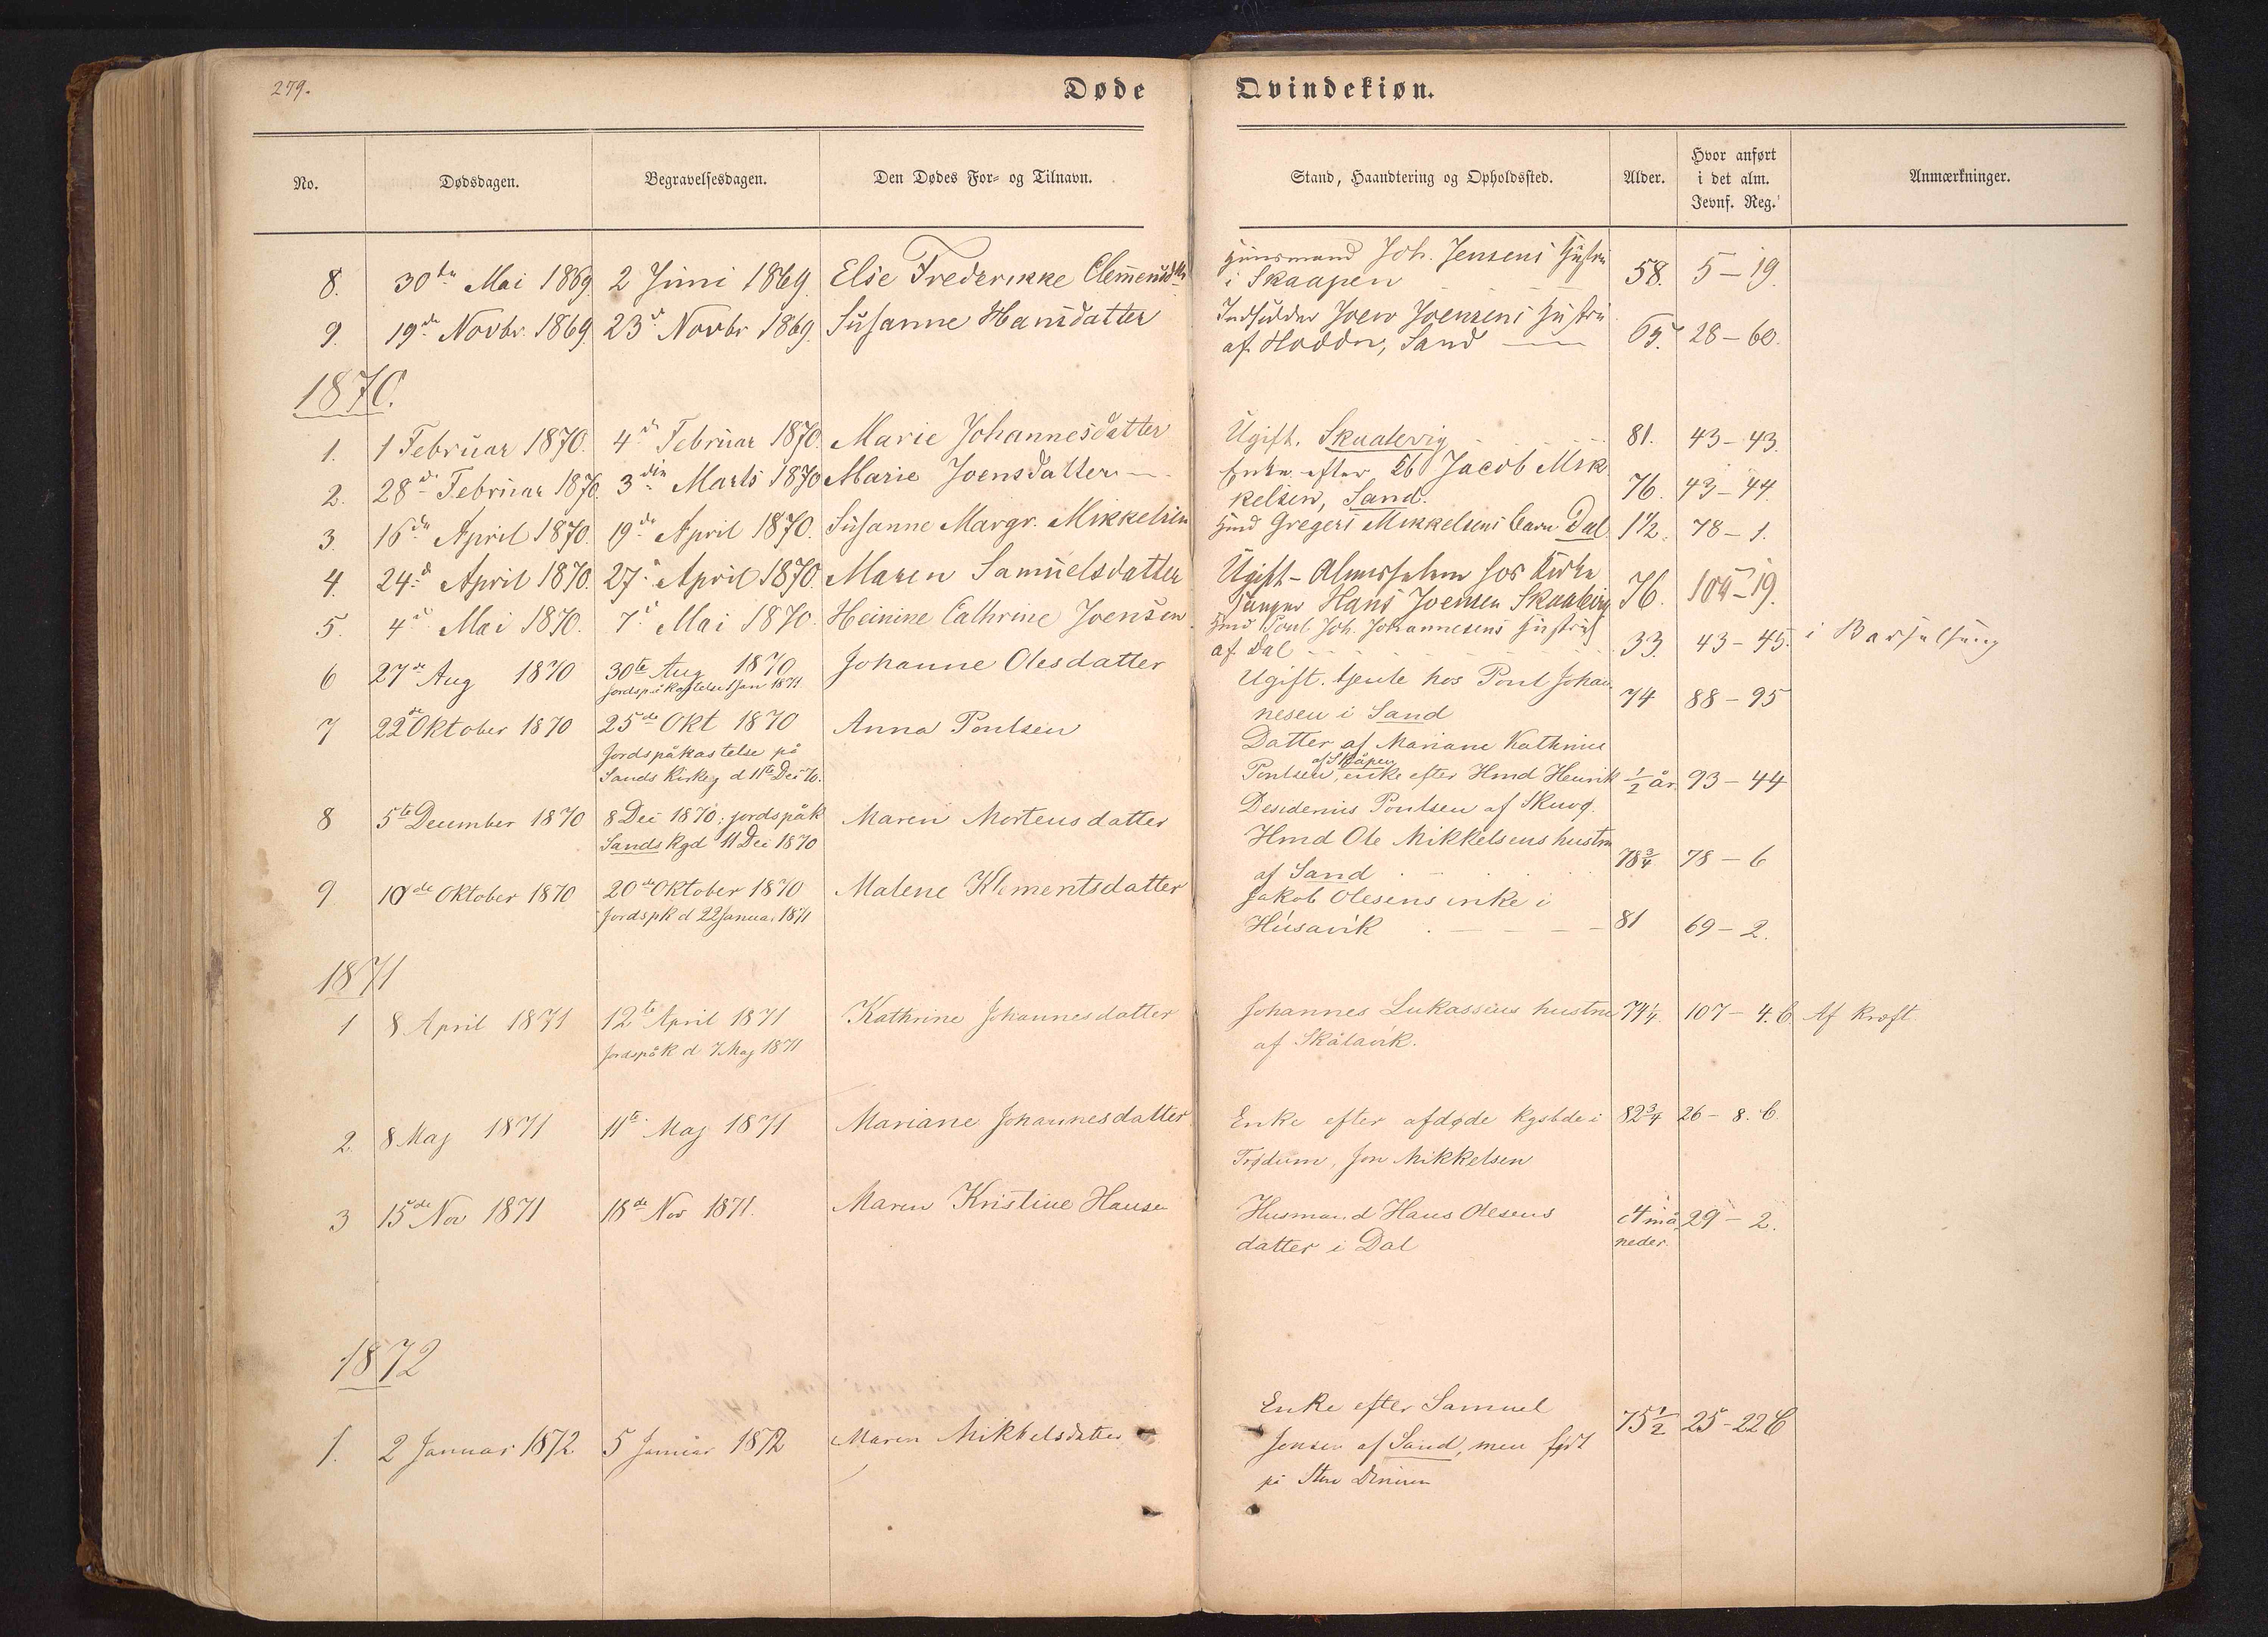 279.
Døde
Qvindekiøn.
No.
Dødsdagen.
Begravelsesdagen.
Den Dødes For- og Tilnavn.
Stand, Haandtering og Opholdssted.
Alder.
Hvor anført
i det alm.
Jevnf. Reg.
Anmærkninger.
8. 30te Mai 1869. 2 Juni 1869. Else Frederikke Clemensdtr Huusmand Joh. Jensens Hustru
i Skaapen 58. 5-19.
9. 19de Novbr. 1869. 23de Novbr 1869. Susanne Hansdatter Indsidder Joen Joensens Hustru
af Hodden, Sand 65. 28-60.
1870.
1. 1 Februar 1870. 4de Februar 1870. Marie Johannesdatter Ugift. Skaalevig 81. 43-43.
2. 28de Februar 1870. 3die Marts 1870 Marie Joensdatter Enke efter Jacob Mik
kelsen, Sand. 76. 43-44.
3. 16de April 1870. 19de April 1870. Susanne Margr. Mikkelsen Hmd Gregers Mikkelsens Barn Dal 1½. 78-1.
4. 24d April 1870. 27d April 1870. Maren Samuelsdatter Ugift - Almisselem hos Kirke
sanger Hans Joensen Skaalevig 76. 104-19.
5. 4d Mai 1870. 7d Mai 1870. Heinine Cathrine Joensen Hmd Poul Joh. Johannesens Hustru
af Dal 33. 43-45. i Barselseng
6 27de Aug 1870 30te Aug 1870 Johanne Olesdatter Ugift. tjente hos Poul Johan
jordspåkastelse Jan 1871
nesen i Sand 74 88-95
7 22de Oktober 1870 25de Okt 1870 Anna Poulsen Datter af Mariane Kathrine
jordspåkastelse på
Sands Kirkeg d 11te Dec 70.
af Skåpen
Poulsen, enke efter Hmd Henrik ½ år. 93-44
Desiderius Poulsen af Skuvø.
8 5te December 1870 8 Dec 1870; jordspåk Maren Mortensdatter Hmd Ole Mikkelsens hustru
Sands Kgd 11 Dec 1870
af Sand 78¾ 78-6
9 10de Oktober 1870 20de Oktober 1870 Malene Klementsdatter Jakob Olesens enke i
jordspk d 22 Januar 1871
Húsavík 81 69-2.
1871
1 8 April 1871 12te April 1871 Kathrine Johannesdatter Johannes Lukassens hustru 74¼. 107-4.C. Af kræft
jordspåk d 7 Maj 1871
af Skálavík.
2. 8 Maj 1871 11te Maj 1871 Mariane Johannesdatter Enke efter afdøde kgsbde i 82¾ 26-8.C.
Trødum, Jon Mikkelsen
3 15de Nov 1871 18de Nov 1871. Maren Kristine Hansen Husmand Hans Olesens 4 må 29-2.
datter i Dal neder.
1872
1. 2 Januar 1872 5 Januar 1872 Maren Mikkelsdatter Enke efter Samuel
Jensen af Sand, men født 75½ 25-22C
på Store Dimon